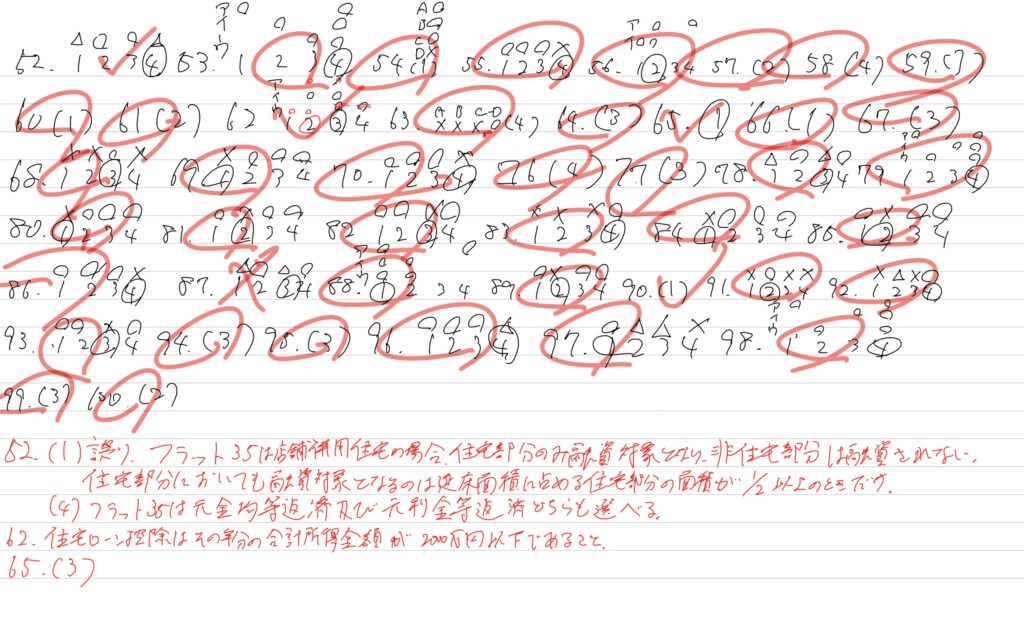 52. 1 2 3 ④ 53. 1 2 3 ④ 54 (1) 55. 1 2 3 ④ 56. 1 ② 3 4 57. (2) 58 (4) 59. (3)
60 (1) 61 (2) 62 1 ② ③ 4 63. A B C D X X X O (4) 64. (3) 65. (1) 66 (1) 67. (3)
68. 1 2 ③ 4 69 ① 2 3 4 70. 1 2 3 ④ 76 (4) 77. (3) 78. 1 2 ③ 4 79 1 2 3 ④
80. ① 2 3 4 81. 1 ② 3 4 82 1 2 ③ 4 83. 1 2 3 ④ 84 ① 2 3 4 85. 1 ② 3 4
86. 1 2 3 ④ 87. 1 2 ③ 4 88. ① 2 3 4 89. 1 ② 3 4 90. (1) 91. 1 ② 3 4 92. 1 2 3 ④
93. 1 2 ③ 4 94. (3) 95. (3) 96. 1 2 3 ④ 97. ① 2 3 4 98. 1 2 3 ④
99. (3) 100. (2)
52. (1) 誤り. フラット35は店舗併用住宅の場合、住宅部分のみ融資対象となり、非住宅部分は融資されない.
住宅部分においても融資対象となるのは延床面積に占める住宅部分の面積が1/2以上のときだけ.
(4) フラット35は元金均等返済及び元利金等返済どちらも選べる.
62. 住宅ローン控除はその年分の合計所得金額が2000万円以下であること.
65. (3)